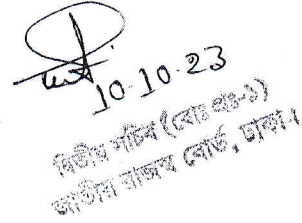 10.10.23
দ্বিতীয় সচিব (বোঃ প্রঃ-১)
জাতীয় রাজস্ব বোর্ড, ঢাকা।